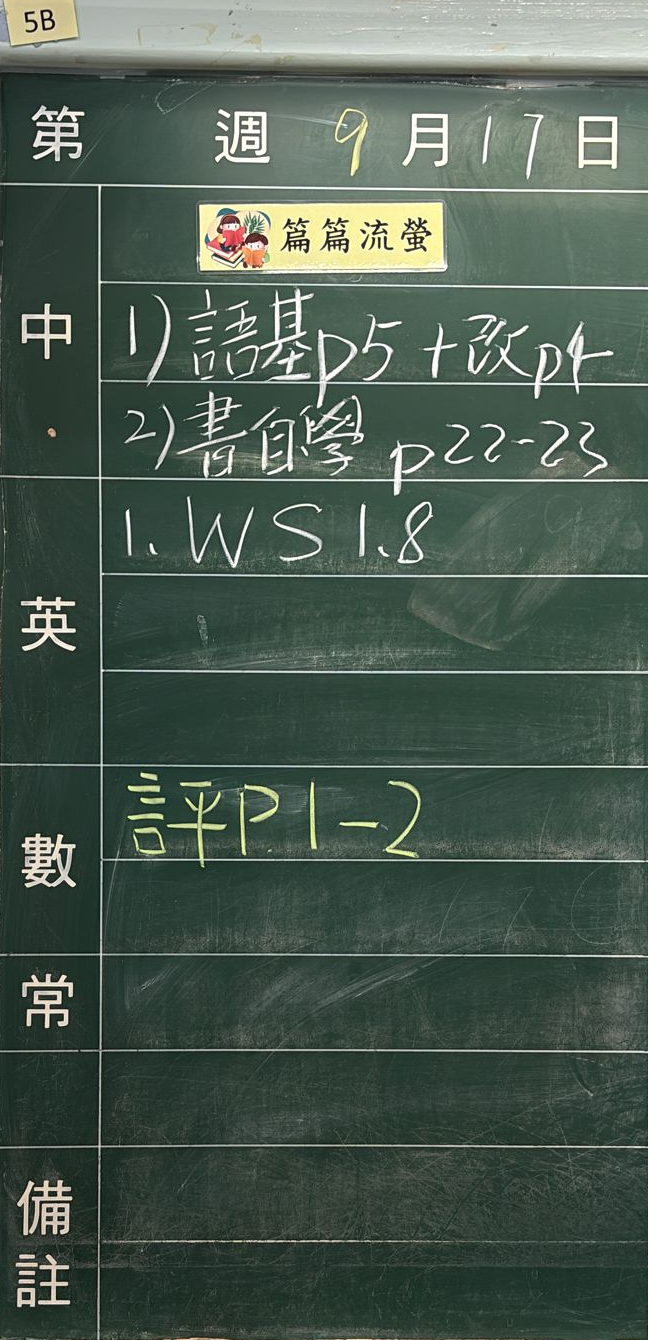 5B
第 週 9 月 17 日
篇篇流螢
中
1) 語基p5 + 改p4
2) 書自學 p22-23
英
1. WS 1.8
數
評P.1-2
常
備註